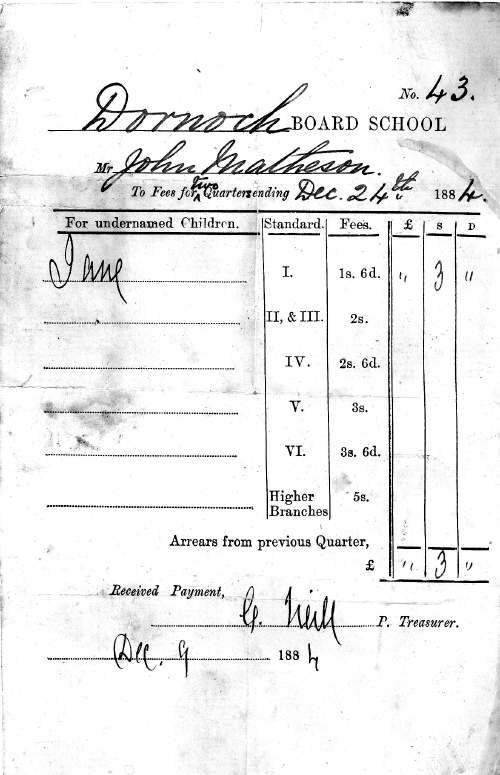 No. 43.
Dornoch BOARD SCHOOL
Mr John Matheson.
To Fees for two Quarters ending Dec. 24th 1884.
For undernamed Children. Standard. Fees. £ S D
Jane I. 1s. 6d. " 3 "
II, & III. 2s.
IV. 2s. 6d.
V. 3s.
VI. 3s. 6d.
Higher Branches 5s.
Arrears from previous Quarter,
£ " 3 "
Received Payment,
G. Neill P. Treasurer.
Dec. 9 1884